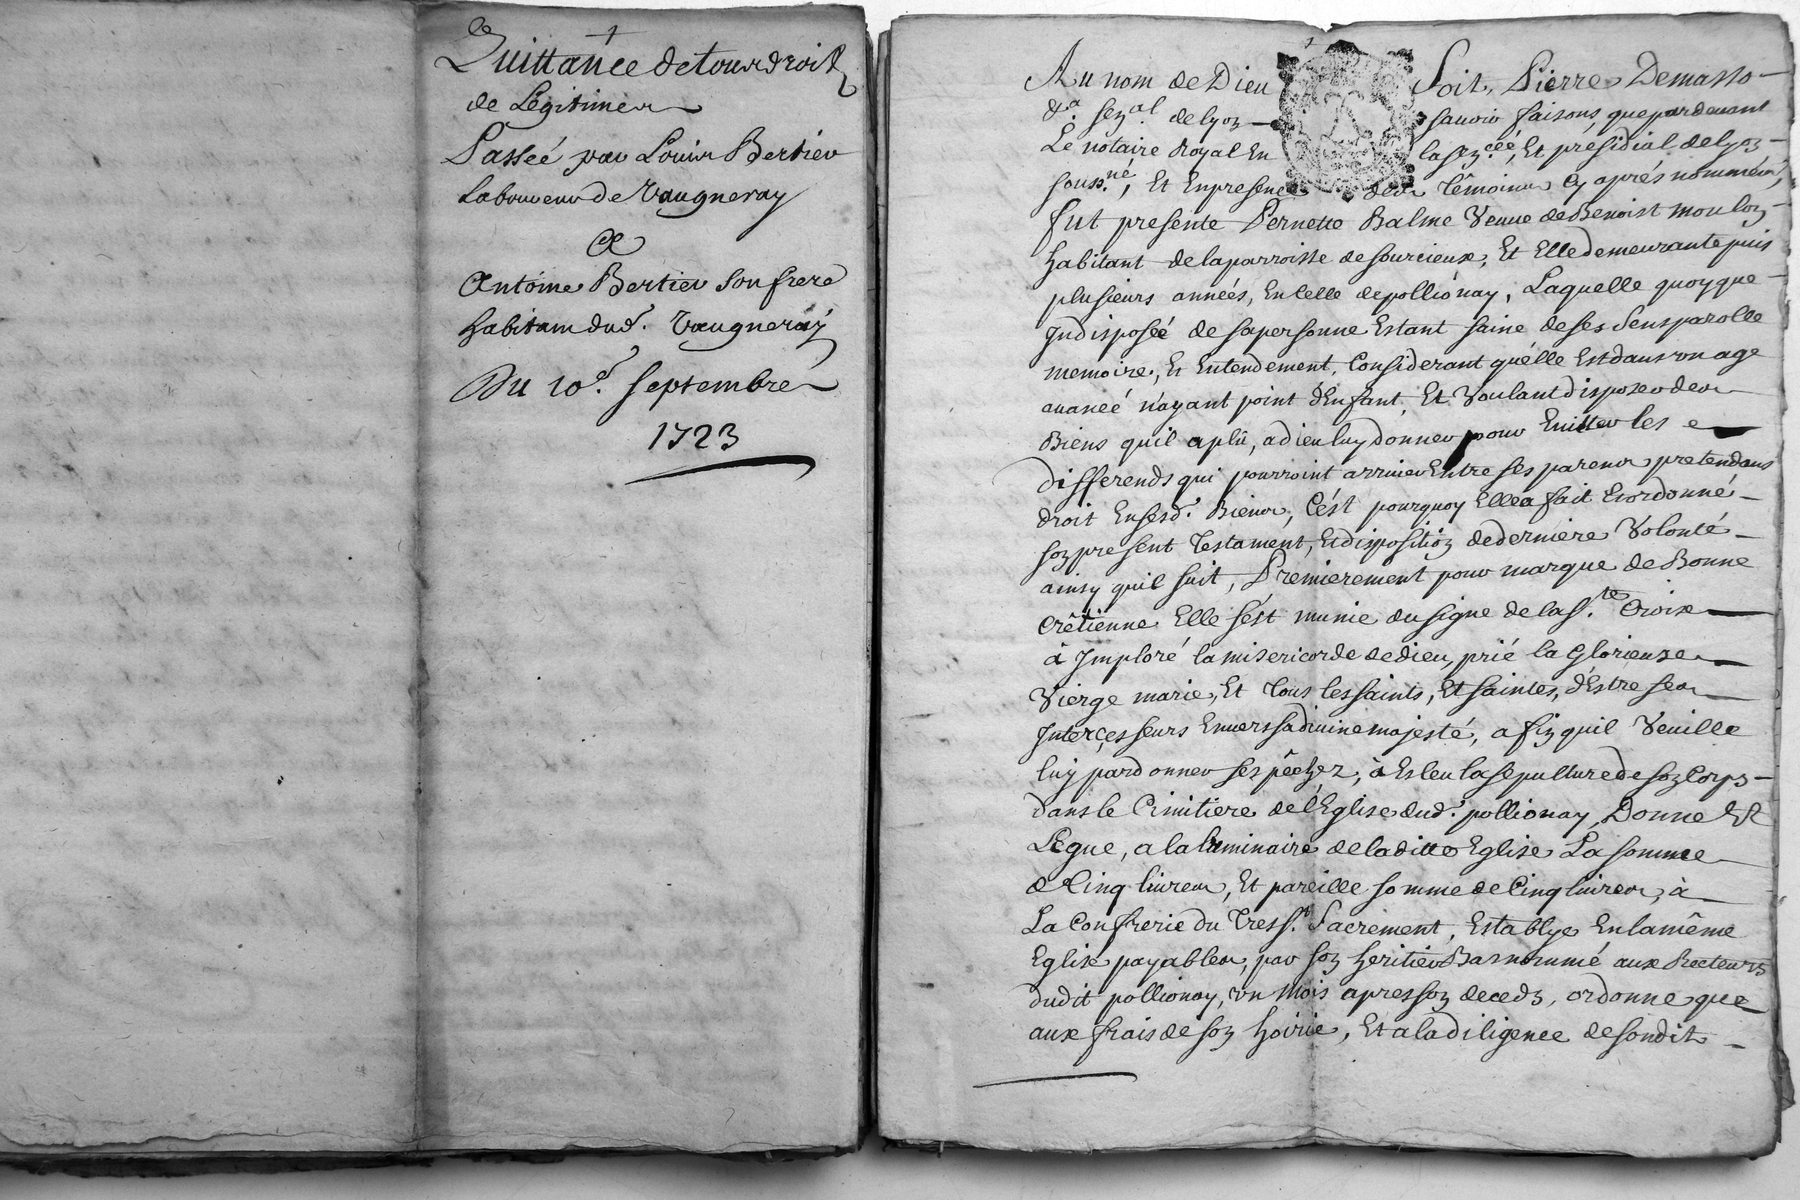 Quittance de tour droits
de Légitimes
Passeé par Louis Bertier
Laboureur de Vaugneray
A
Antoine Bertier son frere
habitant dud. Vaugneray
Du 10e. septembre
1723
Au nom de Dieu Soit, Pierre Demasso
&a. sen.al de lyon sauoir faisons, que pardeuant
Le notaire Royal En la sen.cée, Et présidial de lyon
souss.né, Et En presence des Têmoins Cy aprés nommés,
fut presente Pernette Balme Veuue de Benoist moulon
habitant de la parroisse de sourcieux, Et Elle demeurante puis
plusieurs années, En Celle de pollionay, Laquelle quoyque
Indisposeé de sa personne Estant saine de ses Sens parolle
memoire, Et Entendement, Considerant qu'elle Est dans vn age
auancé n'ayant point d'Enfant, Et Voulant disposer des
Biens quil a plû, a dieu luy donner pour Euitter les
differends qui pourroint arriuer Entre ses parens pretendans
droit En sesd. Biens, C'ést pourquoy Elle a fait Et ordonné
son present Testament, Et disposition de derniere Volonté
ainsy quil suit, Premierement pour marque de Bonne
Crêtienne Elle s'ést munie du signe de la S.te Croix
à Imploré la misericorde de dieu, prié la Glorieuse
Vierge marie, Et Tous les saints, Et saintes, d'Estre ses
Interçesseurs Enuers sa diuine majesté, afin quil Veuille
luy pardonner ses pêchez, à Esleu la sepulture de son Corps
dans le Cimitiere de l'Eglise dud. pollionay, Donne Et
Legue, a la luminaire de la ditte Eglise La somme
de Cinq liures, Et pareille somme de Cinq liures, à
La Confrerie du Tres S.t Sacrement, Establye En la même
Eglise payables, par son heritier Bas nommé aux Recteurs
dudit pollionay, vn mois apres son deceds, ordonne que
aux frais de son hoirie, Et a la diligence de sondit